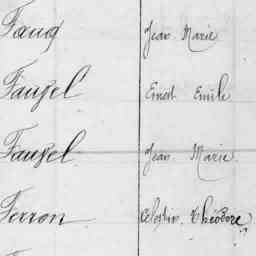 Faug Jean Marie
Faujel Ernest Emile
Faupel Jean Marie
Ferron Célestin Théodore